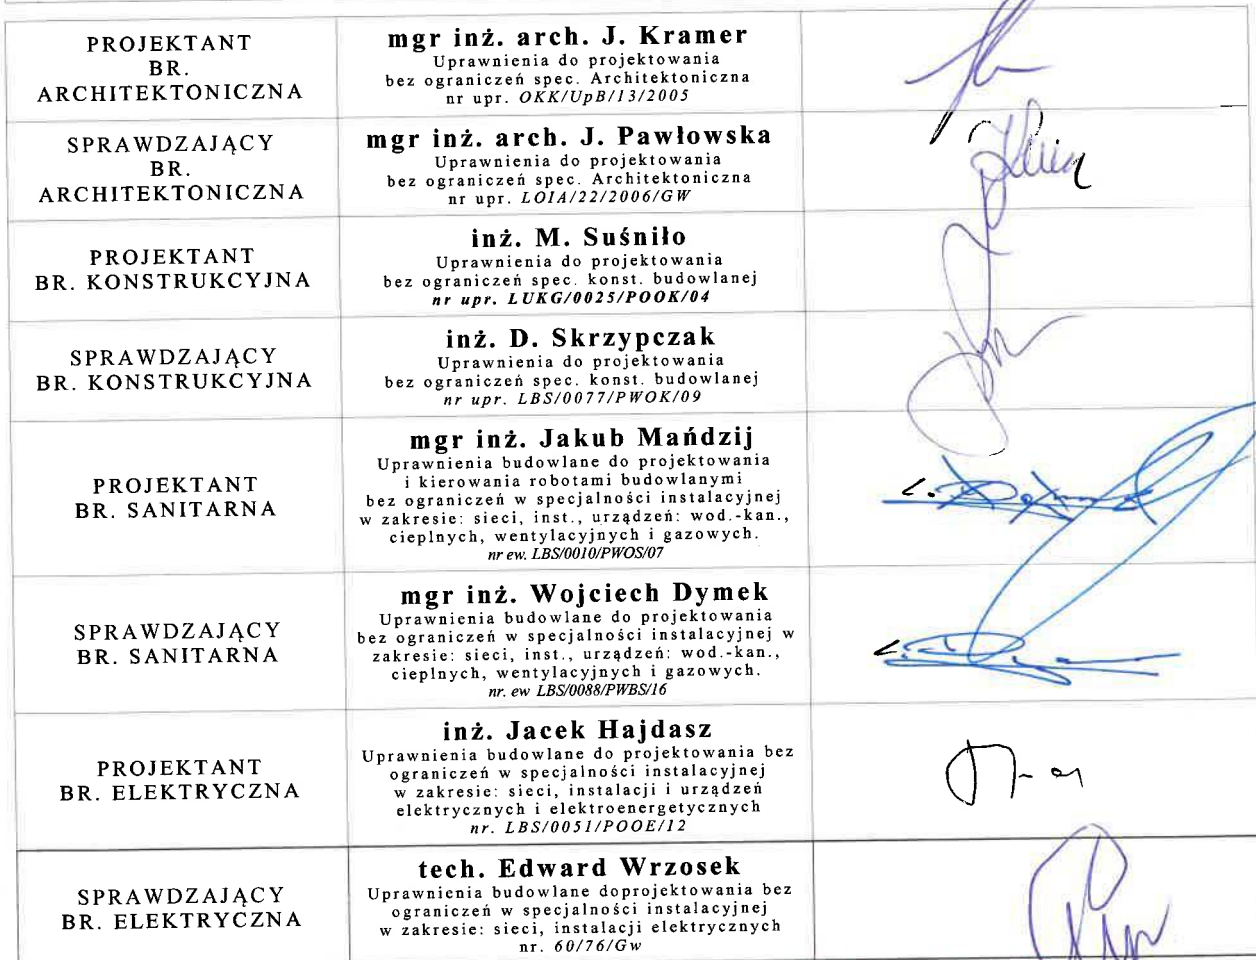 PROJEKTANT
BR.
ARCHITEKTONICZNA
mgr inż. arch. J. Kramer
Uprawnienia do projektowania
bez ograniczeń spec. Architektoniczna
nr upr. OKK/UpB/13/2005
SPRAWDZAJĄCY
BR.
ARCHITEKTONICZNA
mgr inż. arch. J. Pawłowska
Uprawnienia do projektowania
bez ograniczeń spec. Architektoniczna
nr upr. LOIA/22/2006/GW
PROJEKTANT
BR. KONSTRUKCYJNA
inż. M. Suśniło
Uprawnienia do projektowania
bez ograniczeń spec. konst. budowlanej
nr upr. LUKG/0025/POOK/04
SPRAWDZAJĄCY
BR. KONSTRUKCYJNA
inż. D. Skrzypczak
Uprawnienia do projektowania
bez ograniczeń spec. konst. budowlanej
nr upr. LBS/0077/PWOK/09
PROJEKTANT
BR. SANITARNA
mgr inż. Jakub Mańdzij
Uprawnienia budowlane do projektowania
i kierowania robotami budowlanymi
bez ograniczeń w specjalności instalacyjnej
w zakresie: sieci, inst., urządzeń: wod.-kan.,
cieplnych, wentylacyjnych i gazowych.
nr ew. LBS/0010/PWOS/07
SPRAWDZAJĄCY
BR. SANITARNA
mgr inż. Wojciech Dymek
Uprawnienia budowlane do projektowania
bez ograniczeń w specjalności instalacyjnej w
zakresie: sieci, inst., urządzeń: wod.-kan.,
cieplnych, wentylacyjnych i gazowych.
nr. ew LBS/0088/PWBS/16
PROJEKTANT
BR. ELEKTRYCZNA
inż. Jacek Hajdasz
Uprawnienia budowlane do projektowania bez
ograniczeń w specjalności instalacyjnej
w zakresie: sieci, instalacji i urządzeń
elektrycznych i elektroenergetycznych
nr. LBS/0051/POOE/12
SPRAWDZAJĄCY
BR. ELEKTRYCZNA
tech. Edward Wrzosek
Uprawnienia budowlane doprojektowania bez
ograniczeń w specjalności instalacyjnej
w zakresie: sieci, instalacji elektrycznych
nr. 60/76/Gw